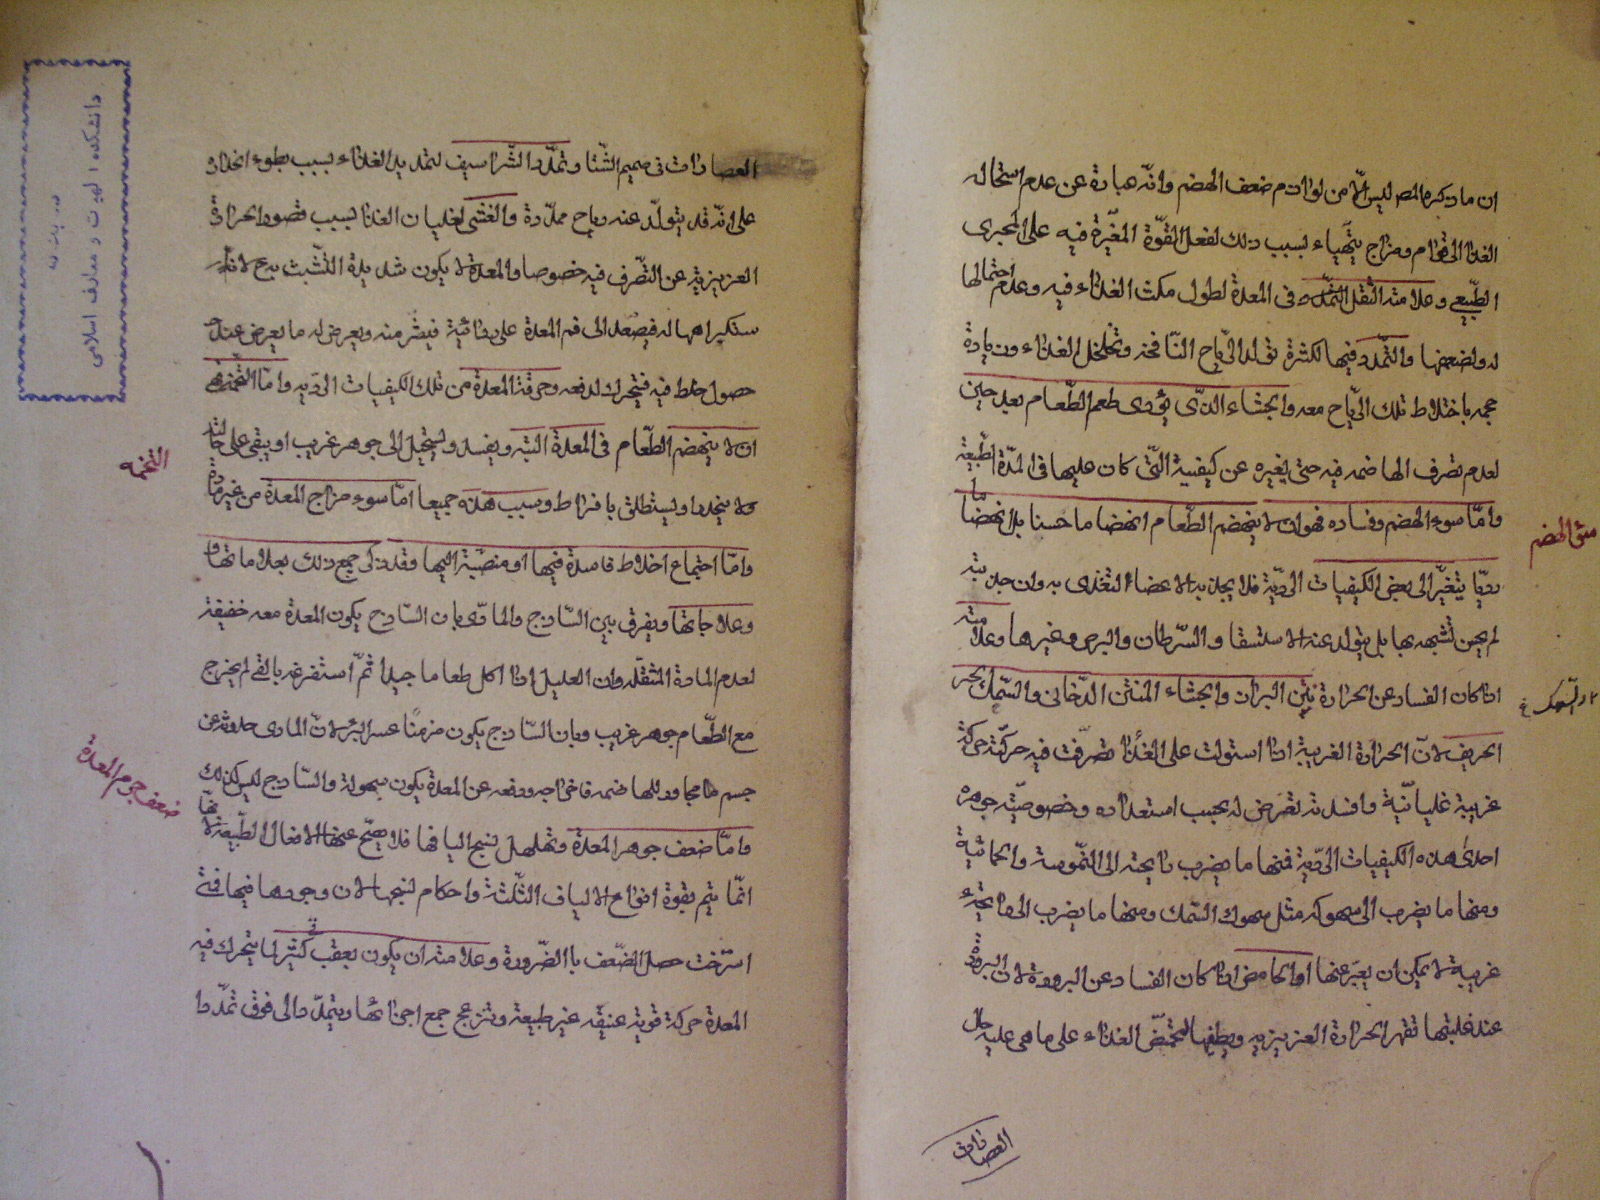 ان ما ذكره المص ليس الّا من لوازم ضعف الهضم وانّه عبارة عن عدم استحالة
الغذا الى قوام ومزاج يتهياء بسبب ذلك لفعل القوّة المغيّرة فيه على المجرى
الطّبيعى وعلامته الثقل التمدّد فى المعدة لطول مكث الغذاء فيه وعدم احتمالها
له ولضعفها والتّمدد فيها لكثرة تولد الرّياح النّافخه وتخلخل الغذاء وزيادة
حجمه باختلاط تلك الرّياح معه والجشاء الذّى يؤدى طعم الطّعام بعد حين
لعدم تصرف الهاضمه فيه حتى يغيره عن كيفية الّتى كان عليها فى المدّة الطّبيعة
وامّا سوء الهضم وفساده فهو ان لا ينهضم الطّعام انهضاما حسنا بل انهضاما
رديّا يتغيّر الى بعض الكيفيات الرديّة فلا يجذبه الاعضاء للتغذى به وان جذبته
لم يحسن تشبهه بها بل يتولد عنه الاستسقا والسّرطان والبرص وغيرها وعلامته
ان كان الفساد عن الحرارة نتن البراز والجشاء المنتن الدّخانى والسّمك
الحريف لانّ الحرارة الغريبة اذا استولت على الغذا تصرّفت فيه حركّته حركة
غريبة غليانيّة وافسدته تعرض له بحسب استعداده وخصوصيّته جوهره
احدى هذه الكيفيات الرديّة فمنها ما يضرب رايحته الى الثّومية والحمائية
ومنها ما يضرب الى سهوكة مثل سهوك السّمك ومنها ما يضرب الى رايحة
غريبة لا يمكن ان يعبّر عنها او الحامض اذا كان الفساد عن البرودة لان البرودة
عند غلبتها تقهر الحرارة الغريزيه ويطفيها فيحمّض الغذاء على ما هى عليه حال
العصارات
سوء الهضم
العصارات فى صميم الشّتا وتمدّد الشّراسيف لتمديد الغذاء بسبب بطوء انحداره
على انّه قد يتولّد عنه رياح ممدّدة والغشى لغليان الغذا بسبب قصور الحرارة
العزيزيّة عن التّصرف فيه خصوصا والمعدة لا يكون شديدة التشّبث به
ستكراهها له فيصعد الى فم المعدة على وفيعرض له ما يعرض عند
حصول خلط فيه فيتحرك لدفعه وحرقة المعدة من تلك الكيفيات الرديه وامّا التخمة فهى
ان لا ينهضم الطّعام فى المعدة البتة ويفسد ويستحيل الى جوهر غريب او يبقى على حالته
ولا ينحدر او يستطلق بافراط وسبب هذه جميعا امّا سوء مزاج المعدة من غير مادة
وامّا اجتماع اخلاط فاسدة فيها او منصّبة اليها وقد ذكر جمع ذلك بعلاماتها
وعلاجاتها ويفرق بين السّاذج والمادّى بان السّاذج يكون المعدة معه خفيفة
لعدم المادة المثقّله وان العليل اذا اكل طعاما جيدا ثمّ استفرغه بالقى لم يخرج
مع الطّعام جوهر غريب وبان السّاذج يكون مزمنًا عسر البرء لانّ المادى حدوثه عن
جسم ما مجاور للهاضمة فاخراجه ودفعه عن المعدة يكون بسهولة والسّاذج ليس كذلك
وامّا ضعف جوهر المعدة وتهلهل نسج اليافها فلا يصحّ عنها الافعال الطّبيعة لانّها
انّما يتم بقوة انواع الالياف الثّلثة واحكام نسجها لان وجودها فيها فمتى
استرخت حصل الضّعف بالضّرورة وعلامته ان يكون بعقب كثير لما يتحرك فيه
المعدة حركة قوية عنيفّه غير طبيعة وتنزعج جمع اجزائها ويتمدّد الى فوق تمدّدا
التخمه
ضعف جرم المعدة
دانشكده الهيات و معارف اسلامى